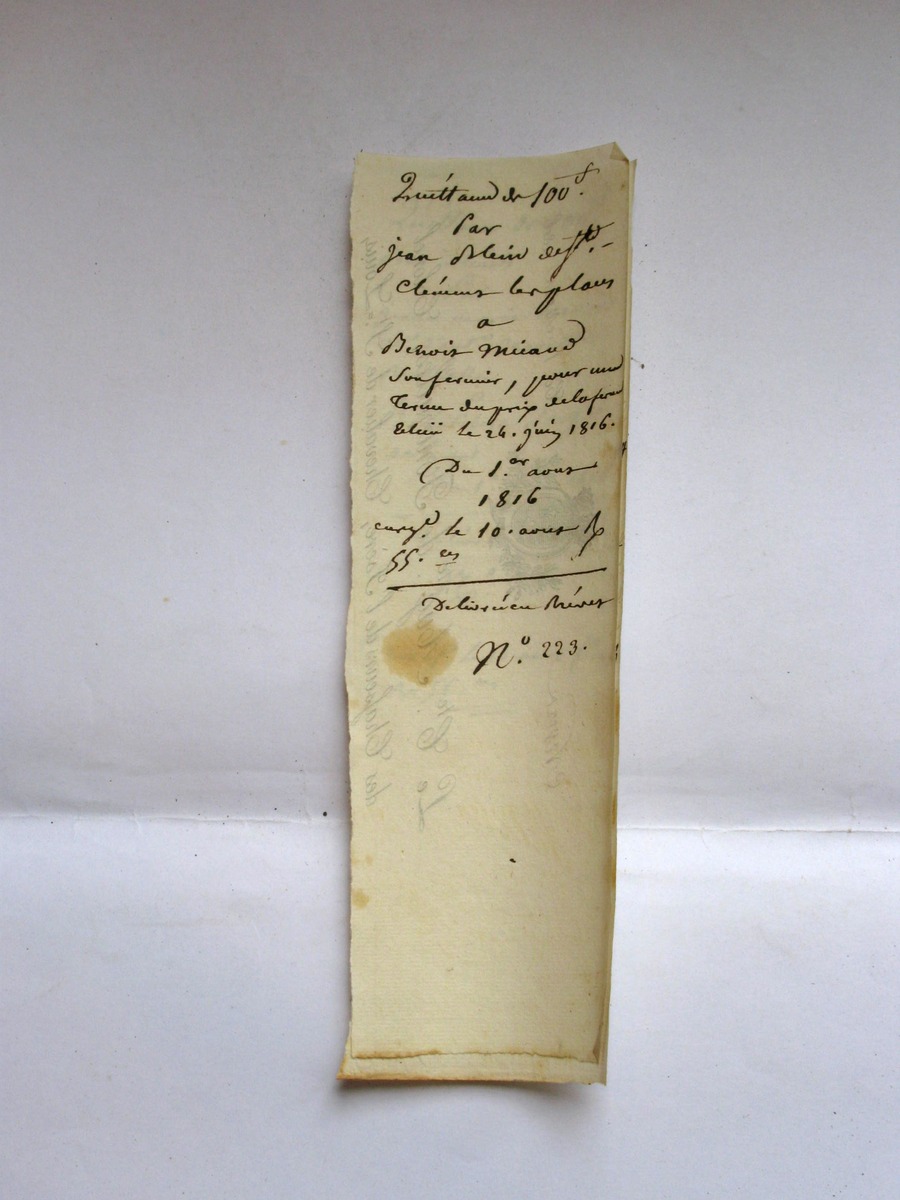 Quittance de 100 f.
Par
jean Blein de St.
Clément les places
a
Benoit Micaud
Son fermier, pour un
Terme du prix de la ferme
Echu le 24. juin 1816.
Du 1.er aout
1816
enreg.é le 10. aout R
55. c.es
Delivré en Brevet
N.o 223.